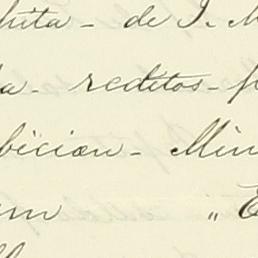 hita - de J. M
a - reditos - p
bicion - Min
um " E